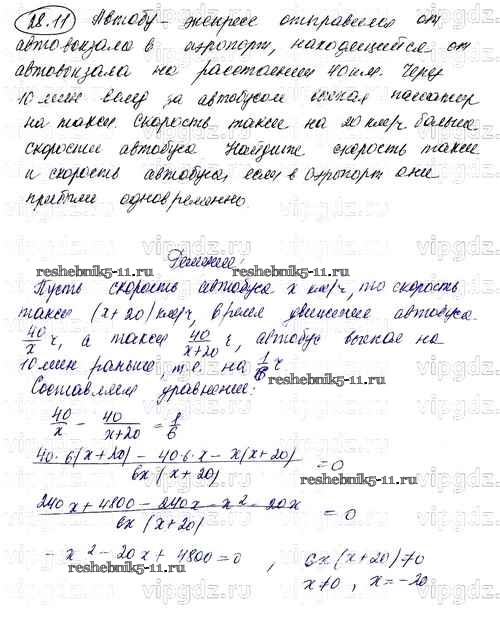 28.11 Автобус-экспресс отправился от
автовокзала в аэропорт, находящийся от
автовокзала на расстоянии 40 км. Через
10 мин вслед за автобусом выехал пассажир
на такси. Скорость такси на 20 км/ч больше
скорости автобуса. Найдите скорость такси
и скорость автобуса, если в аэропорт они
прибыли одновременно.
Решение:
reshebnik5-11.ru reshebnik5-11.ru
Пусть скорость автобуса x км/ч, то скорость
такси (x+20) км/ч, время движения автобуса
40/x ч, а такси 40/(x+20) ч, автобус выехал на
10 мин раньше, т.е. на 1/6 ч
reshebnik5-11.ru
Составляем уравнение:
40/x - 40/(x+20) = 1/6
(40·6(x+20) - 40·6·x - x(x+20))/(6x(x+20)) = 0
reshebnik5-11.ru
(240x + 4800 - 240x - x² - 20x)/(6x(x+20)) = 0
- x² - 20x + 4800 = 0 , 6x(x+20)≠0
reshebnik5-11.ru
x≠0, x=-20
vipgdz.ru